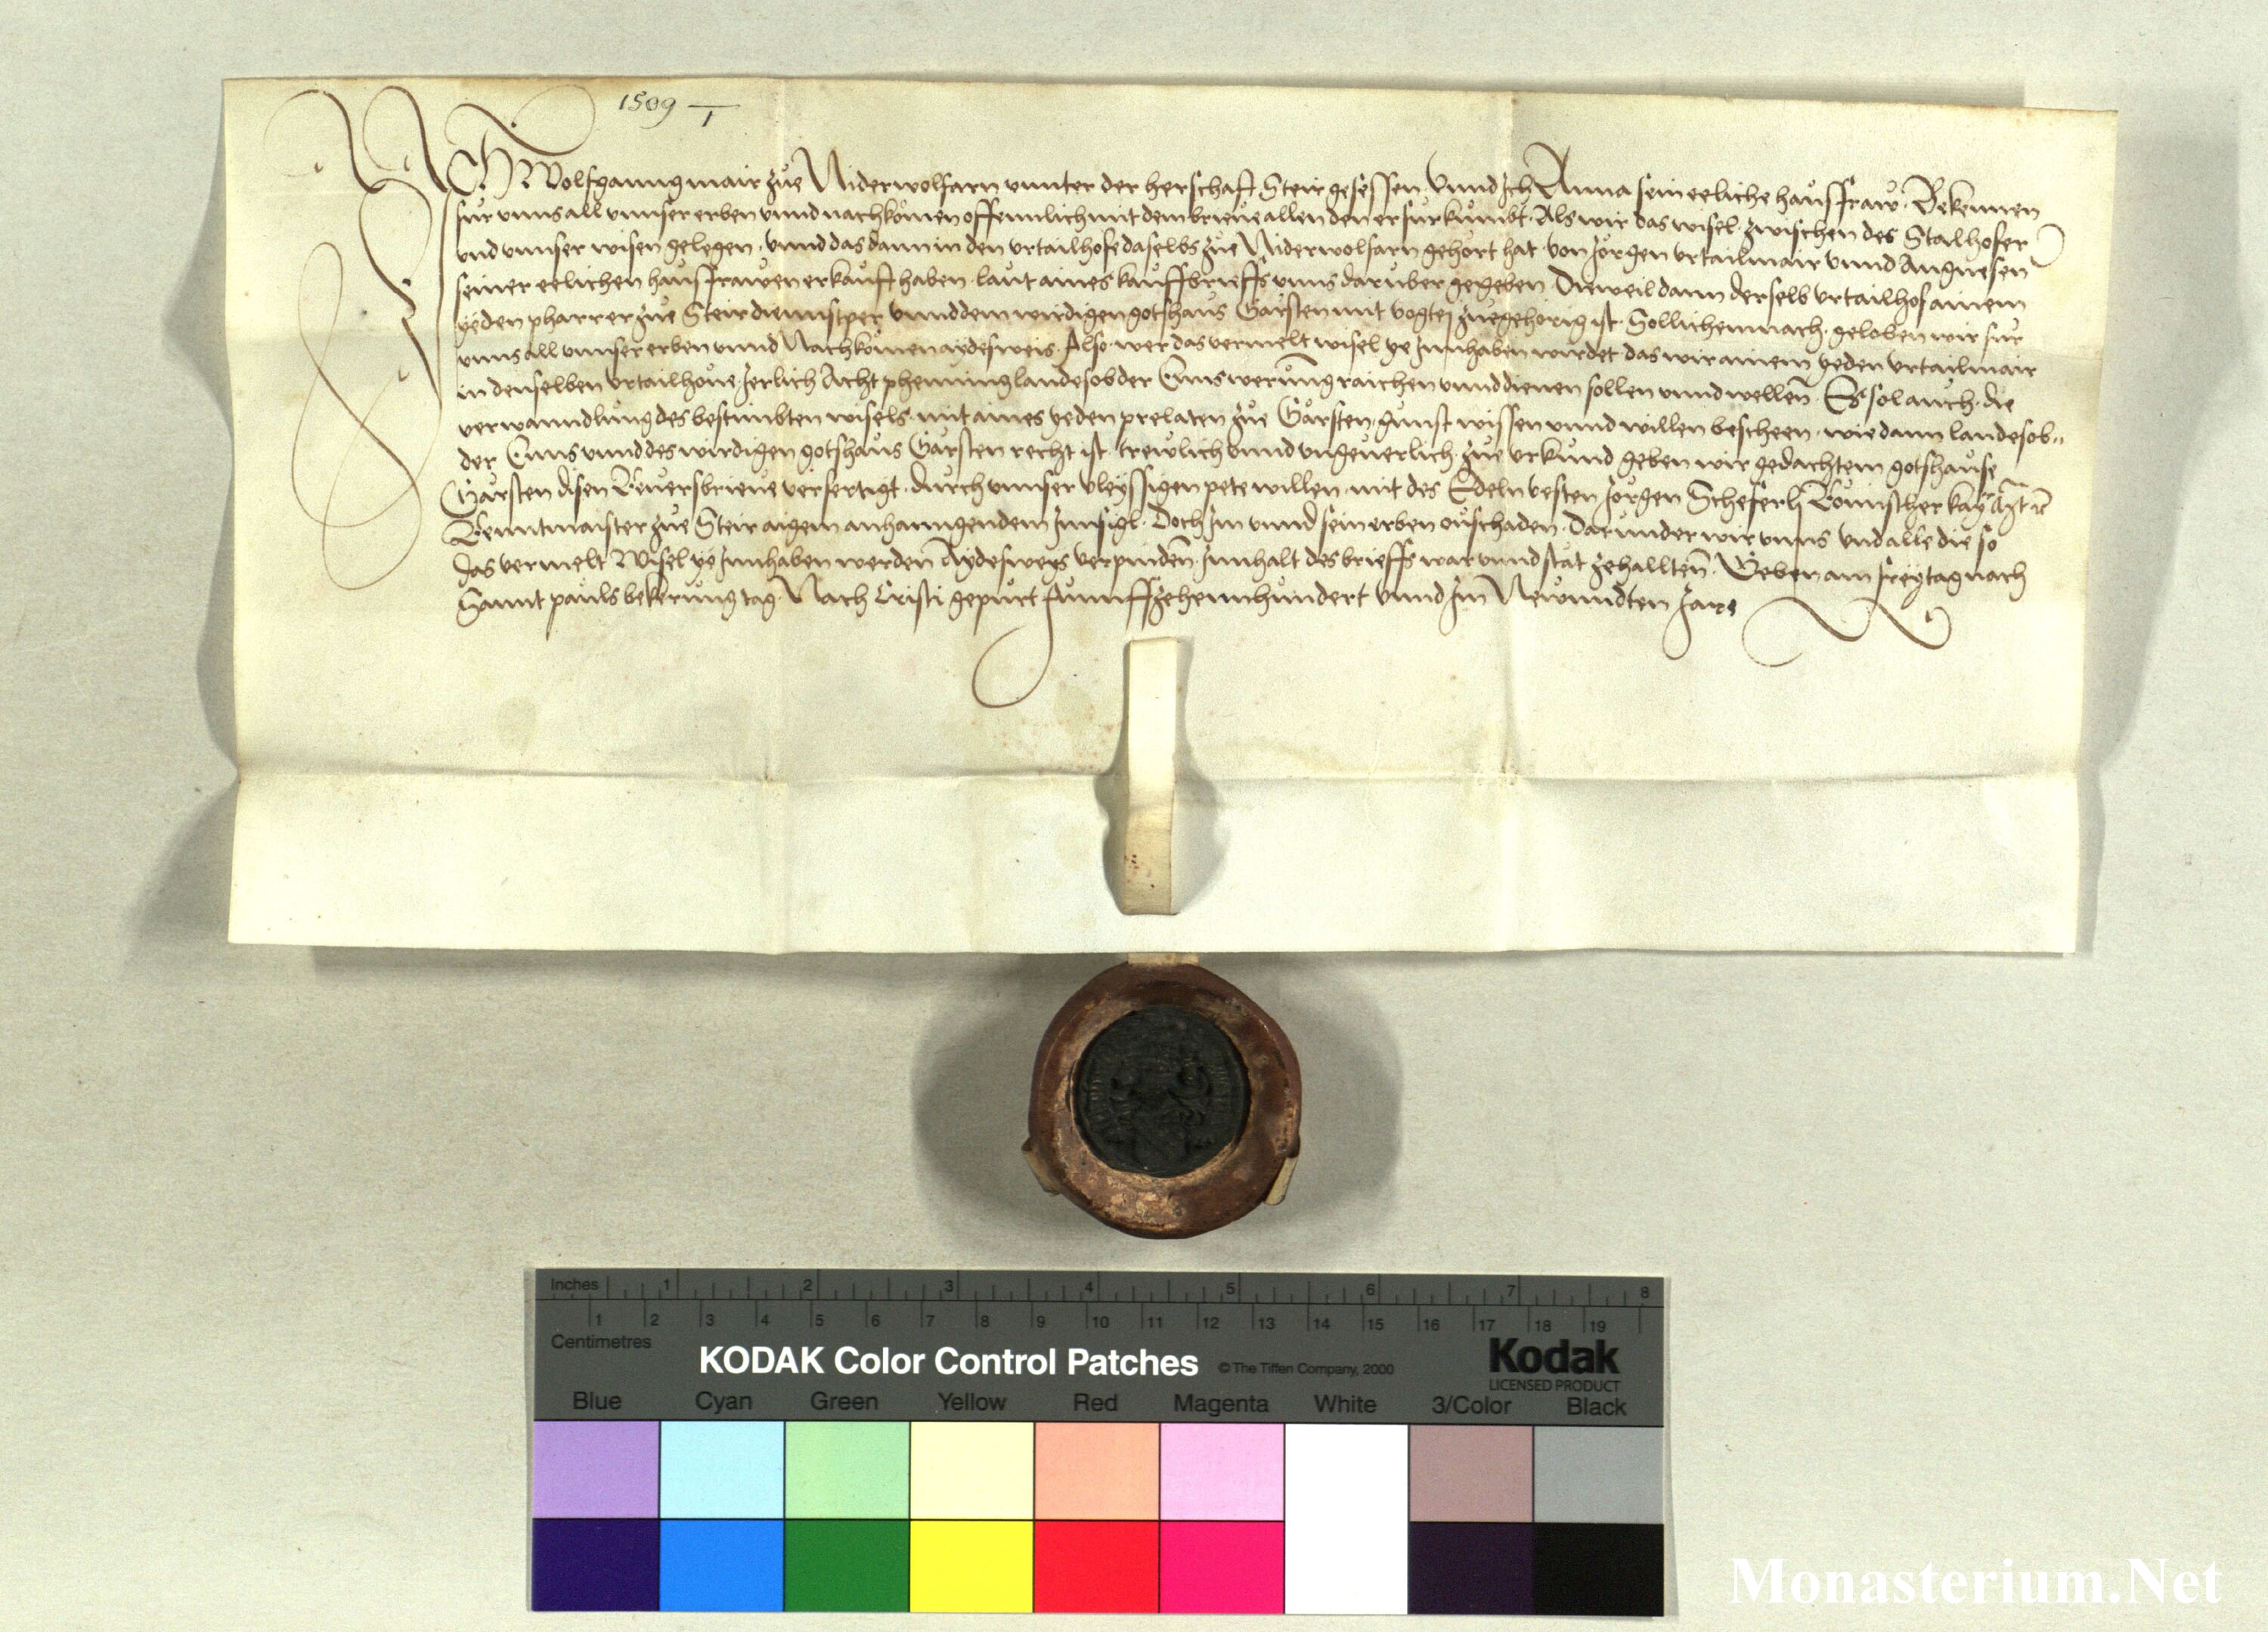 1509 1
ICH Wolfganng mair zue Niderwolfarn vnnter der herschaft Steir gesessen. Vnnd Ich Anna sein eeliche hausfraw. Bekennen
für vnns all vnnser erben vnnd nachkomen offennlich mit dem brieue allen den er fürkumbt. Als wir das wisel zwischen des Stalhofer
vnd vnnser wisen gelegen. vnnd das dann in den vrtailhofe daselbs zue Niderwolfarn gehört hat von Jörgen vrtailmair vnnd Anngnesen
seiner eelichen hausfrawen erkauft haben. laut aines kauffbrieffs vnns darüber gegeben Dieweil dann derselb vrtailhof ainem
yeden pharrer zue Steir diennstper vnnd dem wirdigen gotshaus Gärsten mit vogtej zuegehörig ist. Sollichemnach. geloben wir für
vnns all vnnser erben vnnd Nachkomen aydesweis. Also. wer das vermelt wisel ye Innhaben wirdet das wir ainem yeden vrtailmair
in denselben vrtailhoue. Jerlich Acht phenning lanndes ob der Enns werung raichen vnnd dienen sollen vnnd wellen. Es sol auch. die
verwanndlung des bestimbten wisels. mit aines yeden prelaten zue Gärsten. gunst wissen vnnd willen bescheen. wie dann landes ob
der Enns vnnd des wirdigen gotshaus Gärsten recht ist. treulich vnnd vngeuerlich. zue vrkund geben wir gedachtem gotshause
Gärsten disen Reuersbrieue verfertigt. durch vnnser vleyssigen pete willen. mit des Edeln vesten Jörgen Römischer kay
Renntmaister zue Steir aigem anhanngendem Innsigl. Doch Im vnnd sein erben on schaden. Darunder wir vnns vnd alle die so
das vermelt Wisel ye Innhaben werden Aydesweys verpinden. Innhalt des brieffs war vnnd stät zehallten. Geben am freytag nach
Sannt pauls bekerung tag. Nach Cristi gepurt funnffzehennhundert vnnd Im Newnndten Jare
Inches 1 2 3 4 5 6 7 8
1 2 3 4 5 6 7 8 9 10 11 12 13 14 15 16 17 18 19
Centimetres
KODAK Color Control Patches © The Tiffen Company, 2000 Kodak
LICENSED PRODUCT
Blue Cyan Green Yellow Red Magenta White 3/Color Black
Monasterium.Net